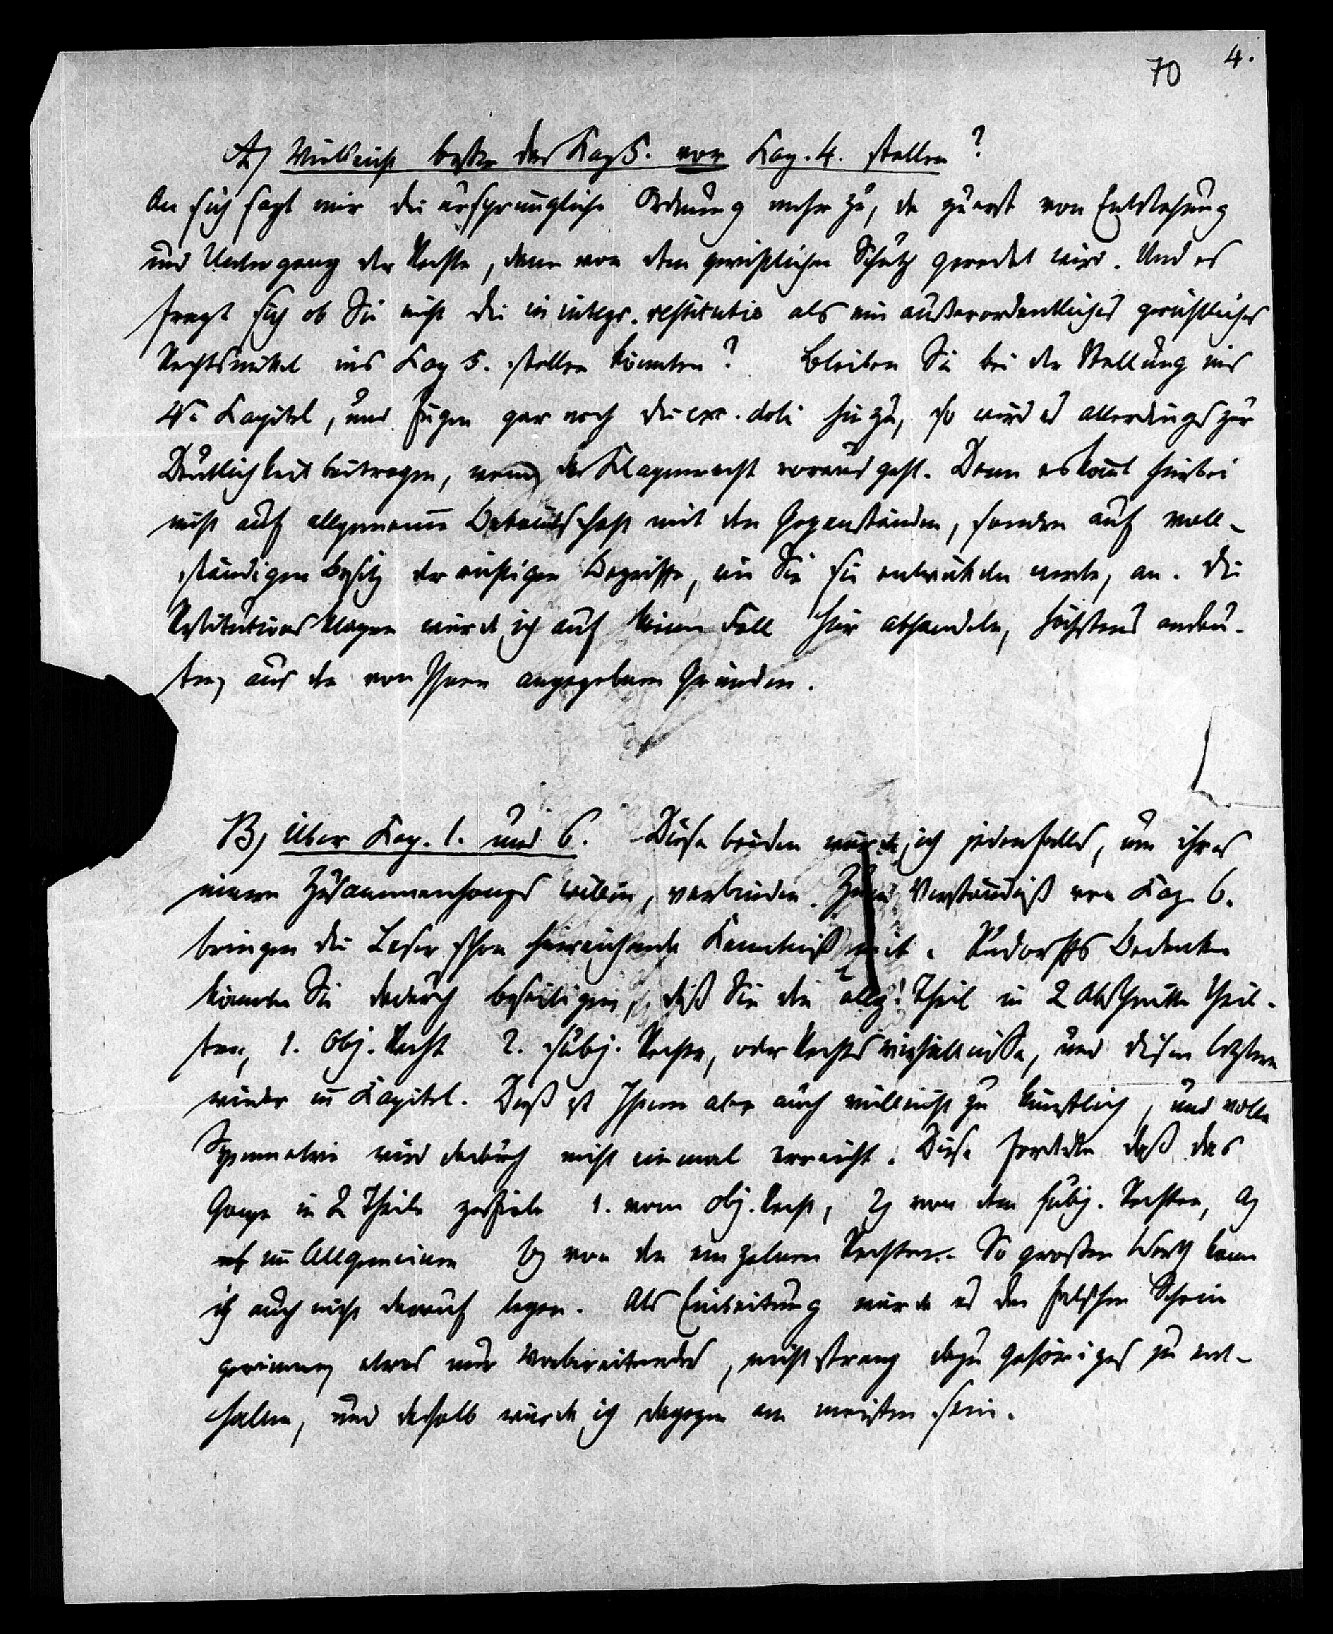 70 4.
A) Vielleicht besser das Kap 5. vor Kap. 4. stellen?
An sich sagt mir die ursprüngliche Ordnung mehr zu, da zuerst von Entstehung
und Untergang der Rechte, dann von dem gerichtlichen Schutz geredet wird. Und es
fragt sich ob Sie nicht die in integr. restitutio als ein außerordentliches gerichtliches
Rechtsmittel ins Kap 5. stellen könnten? Bleiben Sie bei der Stellung ins
4te Kapitel, und fügen gar noch die exc. doli hinzu, so wird es allerdings zur
Deutlichkeit beitragen, wenn das Klagenrecht vorausgeht. Denn es kommt hierbei
nicht auf allgemeine Bekanntschaft mit den Gegenständen, sondern auf voll-
ständigen Besitz der richtigen Begriffe, wie Sie sie entwickeln werden, an. Die
Restitutionsklagen würde ich auf keinen Fall hier abhandeln, höchstens andeu-
ten, aus den von Ihnen angegebenen Gründen.
B) Über Kap. 1. und 6. Diese beiden würde ich jedenfalls, um ihres
innern Zusammenhangs willen, verbinden. Zum Verständniß von Kap 6.
bringen die Leser schon hinreichende Kenntniß mit. Rudorffs Bedenken
könnten Sie dadurch beseitigen, daß Sie den allg. Theil in 2 Abschnitte theil-
ten, 1. Obj. Recht 2. subj. Rechte, oder Rechtsverhältnisse, und diesen letztern
wieder in Kapitel. Dieß ist Ihnen aber auch vielleicht zu künstlich, und volle
Symmetrie wird dadurch nicht einmal erreicht. Diese forderte daß das
Ganze in 2 Theile zerfiele 1. vom obj. Recht, 2) von den subj. Rechten, a)
im Allgemeinen b) von den einzelnen Rechten. So großen Werth kann
ich auch nicht darauf legen. Als Einleitung würde es den falschen Schein
gewinnen etwas nur Vorbereitendes, nicht streng dazu gehöriges zu ent-
halten, und deshalb würde ich dagegen am meisten sein.